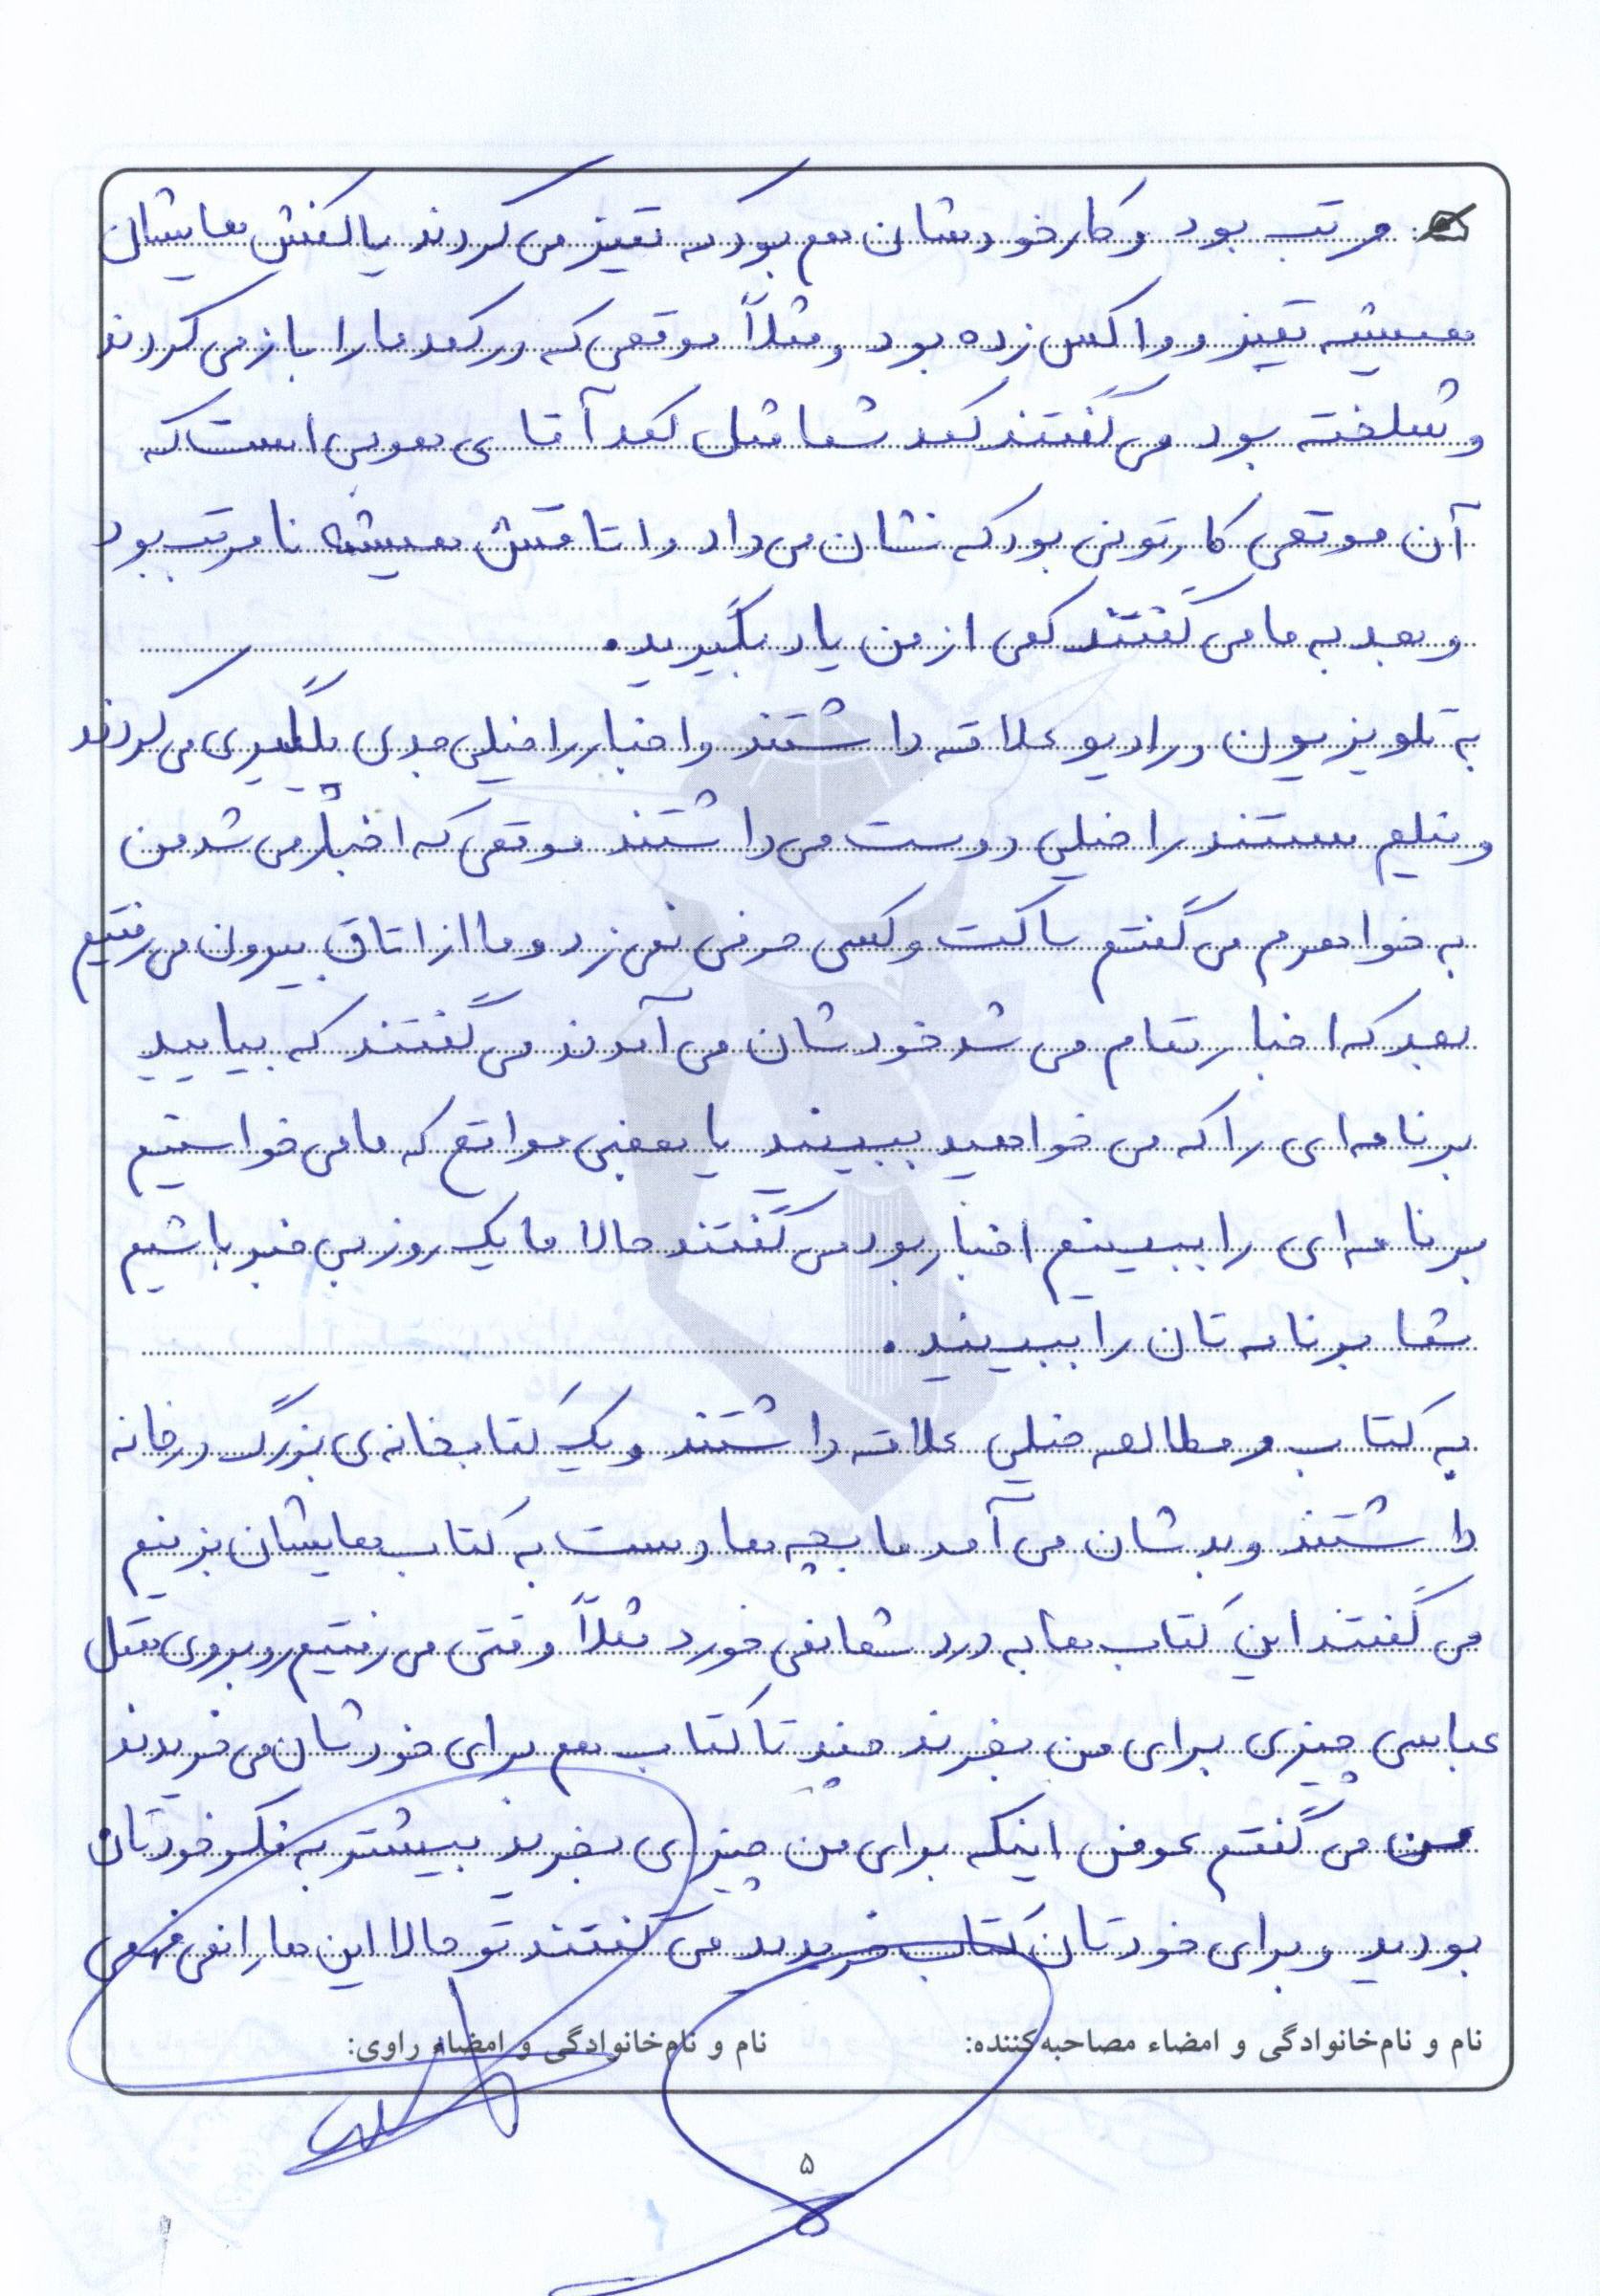 مرتب بود و کار خودشان هم بود که تمیز می کردند یا کفش هایشان
همیشه تمیز و واکس زده بود و مثلاً موقعی که در کمد ما را باز می کردند
و شلخته بود می گفتند کمد شما مثل کمد آقای هوبی است که
آن موقعی کارتونی بود که نشان می داد و اتاقش همیشه نامرتب بود
و بعد به ما می گفتند کمی از من یاد بگیرید.
به تلویزیون و رادیو علاقه داشتند و اخبار را خیلی جدی پیگیری می کردند
و فیلم مستند را خیلی دوست می داشتند موقعی که اخبار می شد من
به خواهرم می گفتم ساکت و کسی حرفی نمی زد و ما از اتاق بیرون می رفتیم
بعد که اخبار تمام می شد خودشان می آمدند می گفتند که بیایید
برنامه ای را که می خواهید ببینید یا بعضی مواقع که ما می خواستیم
برنامه ای را ببینیم اخبار بود می گفتند حالا ما یک روز بی خبر باشیم
شما برنامه تان را ببینید.
به کتاب و مطالعه خیلی علاقه داشتند و یک کتابخانه ی بزرگ در خانه
داشتند و بدشان می آمد ما بچه ها دست به کتاب هایشان بزنیم
می گفتند این کتاب ها به درد شما نمی خورد مثلاً وقتی می رفتیم روبروی هتل
عباسی چیزی برای من بخرند چند تا کتاب هم برای خودشان می خریدند
من می گفتم عوض اینکه برای من چیزی بخرید بیشتر به فکر خودتان
بودید و برای خودتان کتاب خریدید می گفتند تو حالا این ها را نمی فهمی
نام و نام‌خانوادگی و امضاء مصاحبه‌کننده: نام و نام‌خانوادگی و امضاء راوی:
۵